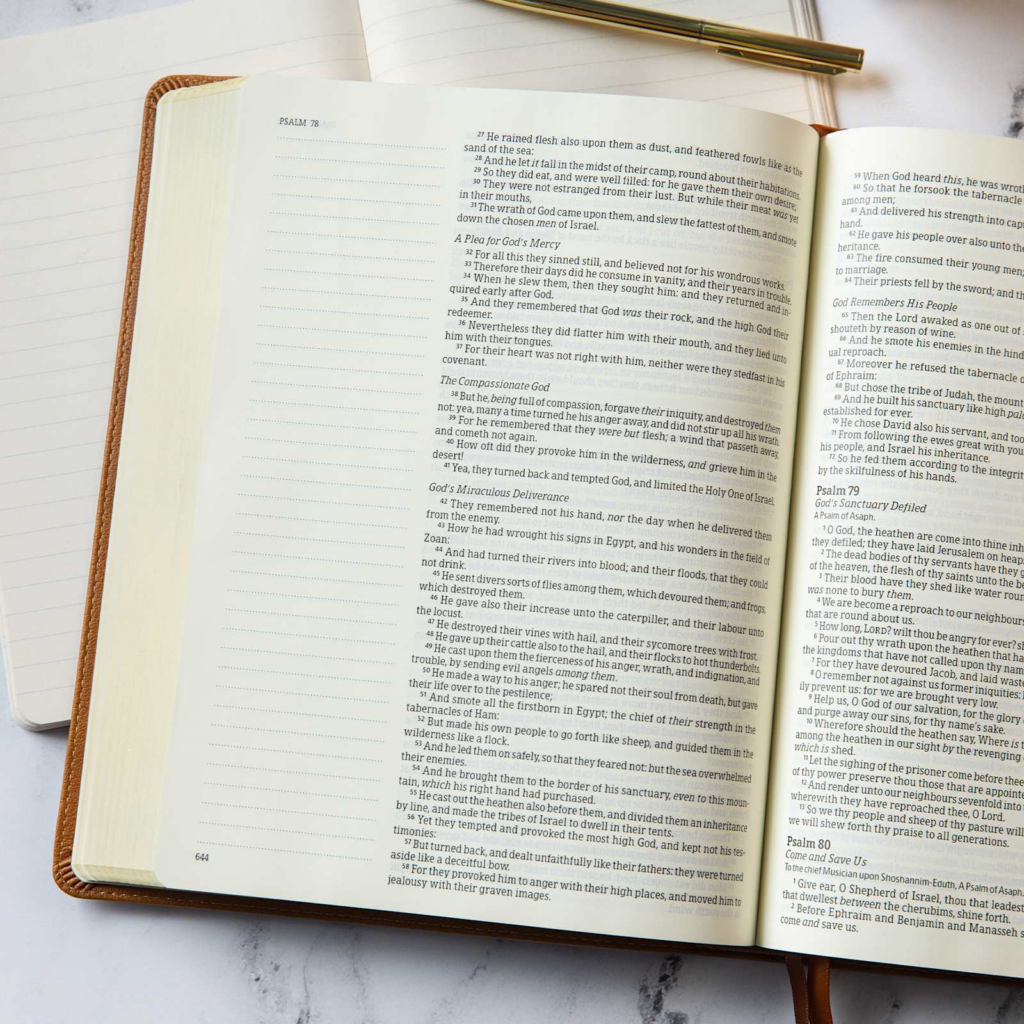 PSALM 78
27 He rained flesh also upon them as dust, and feathered fowls like as the
sand of the sea:
28 And he let it fall in the midst of their camp, round about their habitations.
29 So they did eat, and were well filled: for he gave them their own desire;
30 They were not estranged from their lust. But while their meat was yet
in their mouths,
31 The wrath of God came upon them, and slew the fattest of them, and smote
down the chosen men of Israel.
A Plea for God's Mercy
32 For all this they sinned still, and believed not for his wondrous works.
33 Therefore their days did he consume in vanity, and their years in trouble.
34 When he slew them, then they sought him: and they returned and in-
quired early after God.
35 And they remembered that God was their rock, and the high God their
redeemer.
36 Nevertheless they did flatter him with their mouth, and they lied unto
him with their tongues.
37 For their heart was not right with him, neither were they stedfast in his
covenant.
The Compassionate God
38 But he, being full of compassion, forgave their iniquity, and destroyed them
not: yea, many a time turned he his anger away, and did not stir up all his wrath.
39 For he remembered that they were but flesh; a wind that passeth away,
and cometh not again.
40 How oft did they provoke him in the wilderness, and grieve him in the
desert!
41 Yea, they turned back and tempted God, and limited the Holy One of Israel.
God's Miraculous Deliverance
42 They remembered not his hand, nor the day when he delivered them
from the enemy.
43 How he had wrought his signs in Egypt, and his wonders in the field of
Zoan:
44 And had turned their rivers into blood; and their floods, that they could
not drink.
45 He sent divers sorts of flies among them, which devoured them; and frogs,
which destroyed them.
46 He gave also their increase unto the caterpiller, and their labour unto
the locust.
47 He destroyed their vines with hail, and their sycomore trees with frost.
48 He gave up their cattle also to the hail, and their flocks to hot thunderbolts.
49 He cast upon them the fierceness of his anger, wrath, and indignation, and
trouble, by sending evil angels among them.
50 He made a way to his anger; he spared not their soul from death, but gave
their life over to the pestilence;
51 And smote all the firstborn in Egypt; the chief of their strength in the
tabernacles of Ham:
52 But made his own people to go forth like sheep, and guided them in the
wilderness like a flock.
53 And he led them on safely, so that they feared not: but the sea overwhelmed
their enemies.
54 And he brought them to the border of his sanctuary, even to this moun-
tain, which his right hand had purchased.
55 He cast out the heathen also before them, and divided them an inheritance
by line, and made the tribes of Israel to dwell in their tents.
56 Yet they tempted and provoked the most high God, and kept not his tes-
timonies:
57 But turned back, and dealt unfaithfully like their fathers: they were turned
aside like a deceitful bow.
58 For they provoked him to anger with their high places, and moved him to
jealousy with their graven images.
644
59 When God heard this, he was wroth
60 So that he forsook the tabernacle
among men;
61 And delivered his strength into cap
hand.
62 He gave his people over also unto the
heritance.
63 The fire consumed their young men;
to marriage.
64 Their priests fell by the sword; and th
God Remembers His People
65 Then the Lord awaked as one out of
shouteth by reason of wine.
66 And he smote his enemies in the hind
ual reproach.
67 Moreover he refused the tabernacle o
of Ephraim:
68 But chose the tribe of Judah, the mount
69 And he built his sanctuary like high pala
established for ever.
70 He chose David also his servant, and too
71 From following the ewes great with you
his people, and Israel his inheritance.
72 So he fed them according to the integrit
by the skilfulness of his hands.
Psalm 79
God's Sanctuary Defiled
A Psalm of Asaph.
1 O God, the heathen are come into thine inh
they defiled; they have laid Jerusalem on heap
2 The dead bodies of thy servants have they g
of the heaven, the flesh of thy saints unto the be
3 Their blood have they shed like water roun
was none to bury them.
4 We are become a reproach to our neighbours
that are round about us.
5 How long, LORD? wilt thou be angry for ever? s
6 Pour out thy wrath upon the heathen that ha
the kingdoms that have not called upon thy nam
7 For they have devoured Jacob, and laid waste
8 O remember not against us former iniquities:
ily prevent us: for we are brought very low.
9 Help us, O God of our salvation, for the glory
and purge away our sins, for thy name's sake.
10 Wherefore should the heathen say, Where is t
among the heathen in our sight by the revenging
which is shed.
11 Let the sighing of the prisoner come before thee
of thy power preserve thou those that are appointe
12 And render unto our neighbours sevenfold into
wherewith they have reproached thee, O Lord.
13 So we thy people and sheep of thy pasture will
we will shew forth thy praise to all generations.
Psalm 80
Come and Save Us
To the chief Musician upon Shoshannim-Eduth, A Psalm of Asaph.
1 Give ear, O Shepherd of Israel, thou that leadest
that dwellest between the cherubims, shine forth.
2 Before Ephraim and Benjamin and Manasseh s
come and save us.